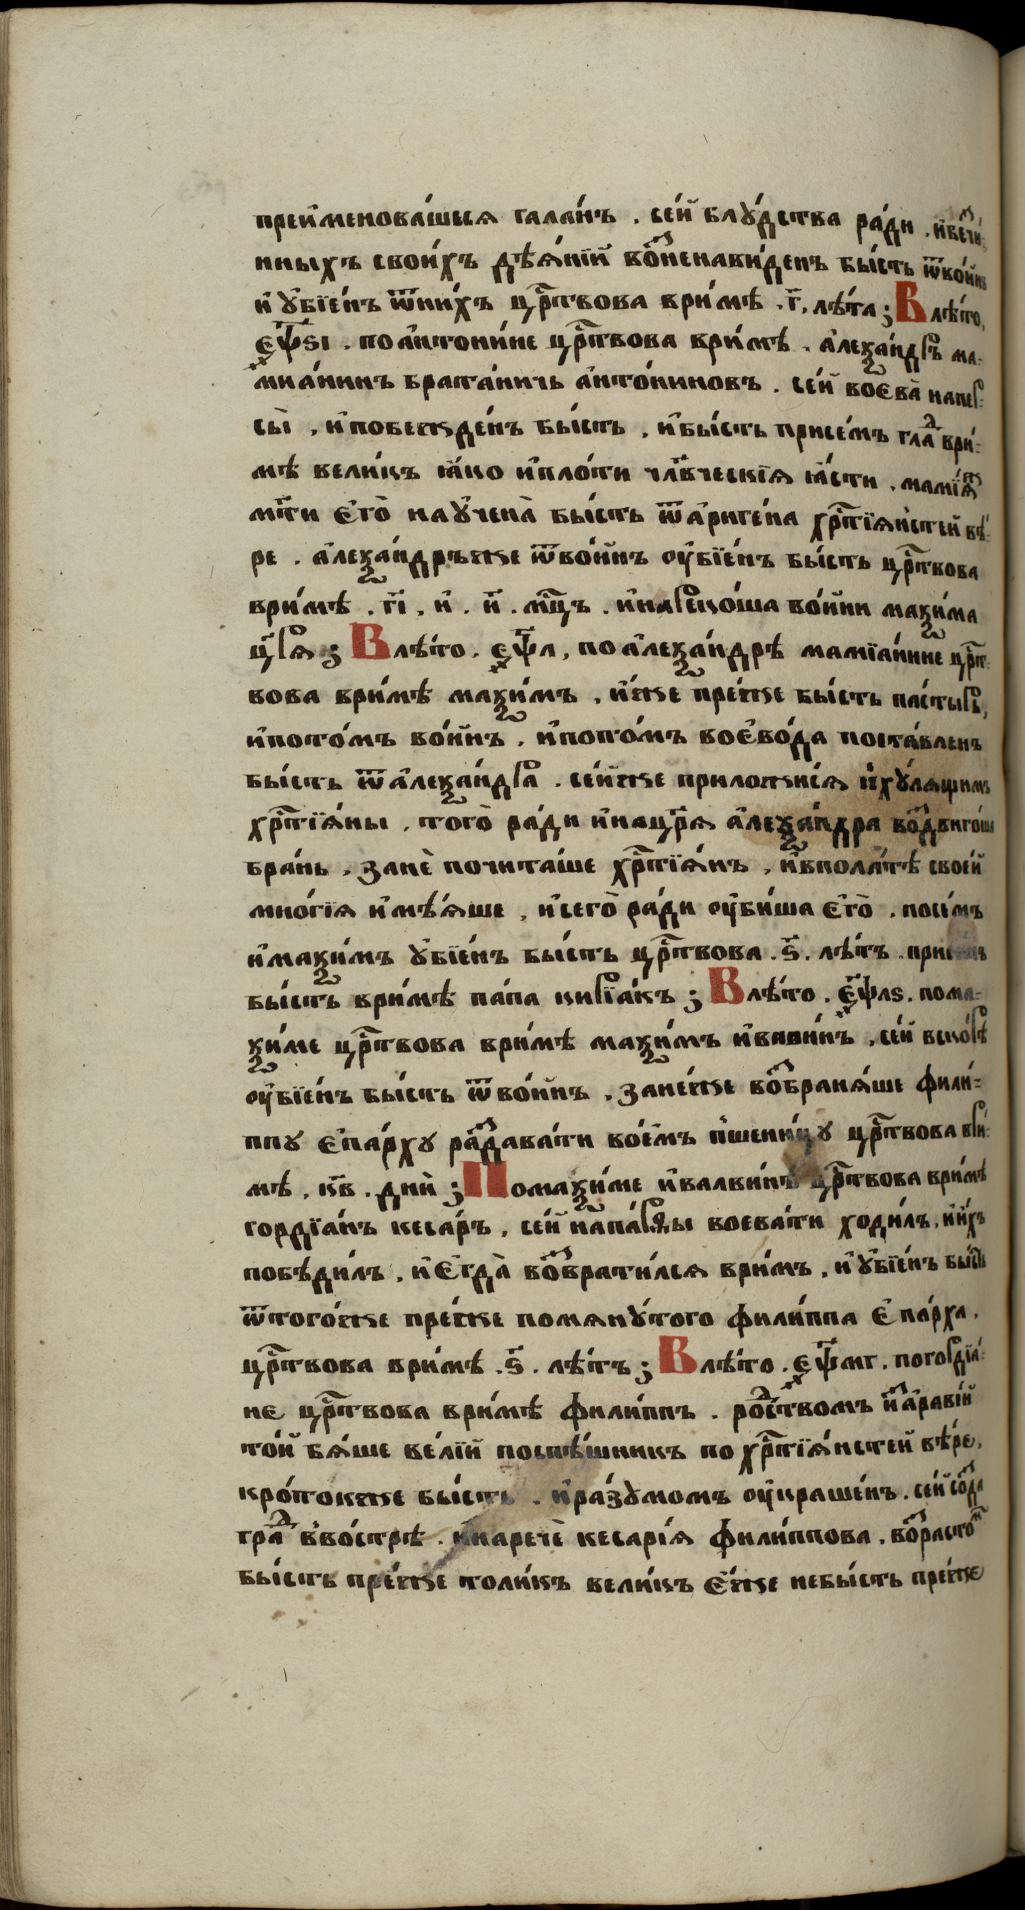 преи҆меновашыся галанъ . се́й блꙋ́дства ра́ди . и҆бечи́
нныхъ свои́хъ дѣѧ́нїй во́ⷥненави́денъ бы́сть ѿво́инъ
и҆ ꙋ҆бїе́нъ ѿни́хъ црⷭ҇твова ври́мѣ . г҃ . лѣ́та ; Влѣ́то ,
є҂ѱ҃ѕі . поа҆нтони́не црⷭ҇твова ври́мѣ . а҆леѯа́ндръ ма-
мианинъ брата́ничь а҆нто́ниновъ . се́й воєва̀ напер-
сы̀ , и҆побежде́нъ бы́сть , и҆бы́сть присе́мъ глаⷣ ври́-
мѣ вели́къ ꙗ҆́ко и҆пло́ти чл҃вческїѧ ꙗ҆́сти . мамі́ѧ
мт҃и є҆го̀ наꙋ҆чена̀ бы́сть ѿа҆риге́на хрⷭ҇тїѧ́нстей вѣ́-
ре . а҆леѯа́ндръже ѿво́инъ ᲂу҆бїе́нъ бы́сть црⷭ҇твова
ври́мѣ . г҃і , и҆ . и҃ . мцⷭ҇ъ . и҆нареко́ша во́ини маѯима
цр҃ѧ ; Влѣ́то . є҂ѱ҃л , поа҆леѯа́ндрѣ мамїа́нине црⷭ҇т
вова ври́мѣ маѯи́мъ , и҆́же пре́же бы́сть па́стырь ,
и҆пото́мъ во́инъ . и҆пото́мъ воєво́да поста́вленъ
бы́сть ѿа҆леѯа́ндра . се́йже приложи́сѧ и҆хꙋлѧщимъ
хрⷭ҇тїѧ́ны . того̀ ра́ди и҆нацр҃ѧ а҆леѯа́ндра воⷥдвиго́ша
бра́нь . занѐ почита́ше хрⷭ҇тїѧ́нъ , и҆впола́тѣ свое́й
мно́гїѧ и҆мѣ́ѧше , и҆сего̀ ра́ди ᲂу҆би́ша є҆го̀ . посе́мъ
и҆маѯи́мъ ꙋ҆бїе́нъ бы́сть црⷭ҇твова . ѕ҃ . лѣ́тъ . при
бы́сть ври́мѣ па́па кирїа́къ ; Влѣ́то . є҂ѱ҃лѕ . пома-
ѯи́ме црⷭ҇твова ври́мѣ маѯи́мъ и҆вавинъ , се́й вско́рѣ
ᲂу҆бїе́нъ бы́сть ѿво́инъ . зане́же воⷥбранѧ́ше фили́-
ппꙋ є҆па́рхꙋ раⷥдава́ти во́емъ пшени́цꙋ црⷭ҇твова ври́-
мѣ , к҃в . дни̑ ; Помаѯи́ме и҆валви́нѣ црⷭ҇твова ври́мѣ
гордїа́нъ ке́сарь , се́й напарѳы воева́ти ходи́лъ , и҆и́хъ
побѣди́лъ . и҆є҆гда̀ воⷥврати́лсѧ вримъ , и҆ ꙋ҆бїе́нъ бы́сть
ѿтого́же пре́же помѧнꙋ́того фили́ппа є҆па́рха .
црⷭ҇твова ври́мѣ . ѕ҃ . лѣ́тъ ; Влѣ́то . є҂ѱ҃мг . погордїа́-
не црⷭ҇твова ври́мѣ фили́ппъ . роⷤство́мъ иⷥа҆рави́и
то́й бѧ́ше ве́лїй поспѣ́шникъ по хрⷭ҇тїѧ́нстей вѣ́ре .
кро́токже бы́сть . и҆ра́зꙋмомъ ᲂу҆краше́нъ . се́й соⷥда
граⷣ вво́стрѣ . и҆наречѐ кесарі́ѧ фили́ппова . воⷥрастоⷨ
бы́сть пре́же толи́къ вели́къ є҆́же небы́сть пре́же